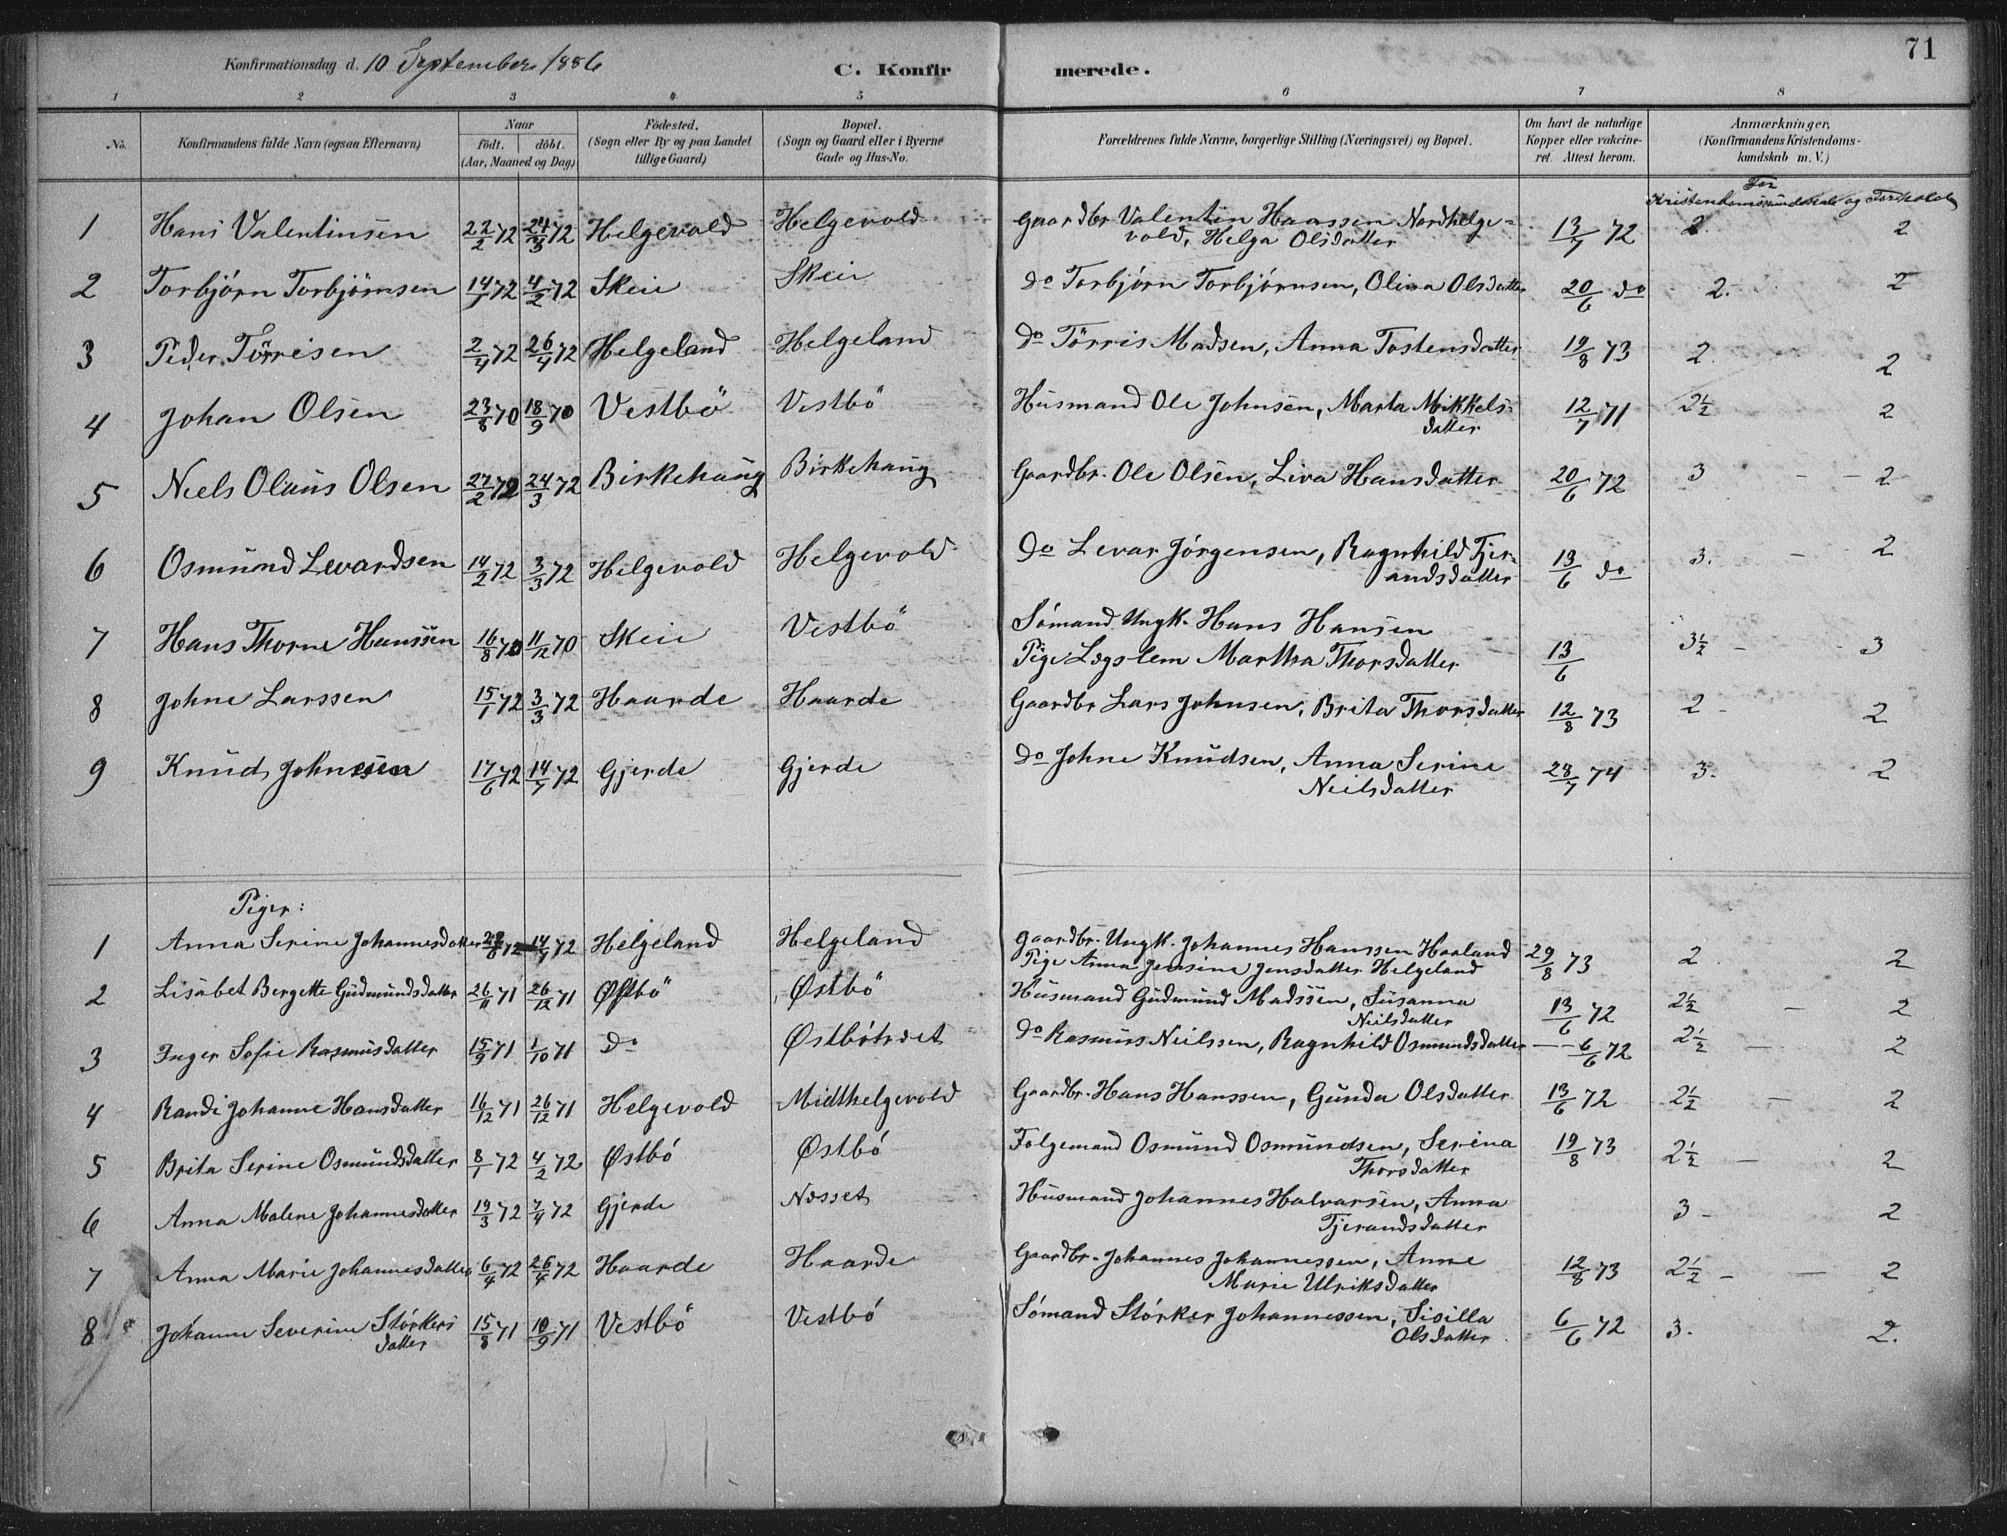 71
Konfirmationsdag d. 10 September 1886
C. Konfir merede.
1 2 3 4 5 6 7 8
No. Konfirmandens fulde Navn (ogsaa Efternavn) Naar födt. döbt. (Aar, Maaned og Dag) Födested. (Sogn eller By og paa Landet tillige Gaard) Bopæl. (Sogn og Gaard eller i Byerne Gade og Hus-No. Forældrenes fulde Navne, borgerlige Stilling (Næringsvei) og Bopæl. Om havt de naturlige Kopper eller vakcineret. Attest herom. Anmærkninger, (Konfirmandens Kristendomskundskab m. V.)
For
Kristendomskundskab og Forhold
1 Hans Valentinsen 22/2 72 24/3 72 Helgevold Helgevold Gaardbr Valentin Hanssen Nordhelge- 13/7 72 2. 2
vold, Helga Olsdatter
2 Torbjørn Torbjørnsen 14/1 72 4/2 72 Skeie Skeie do Torbjørn Torbjørnsen, Olina Olsdatter 20/6 do 2. 2
3 Peder Tørrisen 2/4 72 26/4 72 Helgeland Helgeland do Tørris Madsen, Anna Tostensdatter 19/8 73 2. 2
4 Johan Olsen 23/8 70 18/9 70 Vestbö Vestbö Husmand Ole Johnsen, Marta Mikkels- 12/7 71 2½ 2
datter
5 Niels Olaus Olsen 27/2 72 24/3 72 Birkehaug Birkehaug Gaardbr. Ole Olsen, Liva Hansdatter 20/6 72 3 - - 2
6 Osmund Levardsen 14/2 72 3/3 72 Helgevold Helgevold do Levar Jørgensen, Ragnhild Tjer- 13/6 do 3. - 2
andsdatter
7 Hans Thorne Hanssen 16/8 70 11/12 70 Skeie Vestbö Sømand Ungk. Hans Hansen
Pige Løgslem Martha Thorsdatter 13/6 3½ - - 3
8 Johne Larssen 15/1 72 3/3 72 Haarde Haarde Gaardbr Lars Johnsen, Brita Thorsdatter 12/8 73 2 - 2
9 Knud Johnesen 17/6 72 14/7 72 Gjerde Gjerde do Johne Knudsen, Anna Serine 28/7 74 3. 2
Neilsdatter
Piger:
1 Anna Serine Johannesdatter 72 14/4 72 Helgeland Helgeland Gaardbr. Ungk. Johannes Hanssen Haaland 29/8 73 2 2
Pige Anna Jensine Jensdatter Helgeland
2 Lisabet Bergette Gudmundsdatter 26/11 71 26/12 71 Østbö Østbö Husmand Gudmund Madssen, Susanna 13/6 72 2½ - 2
Neilsdatter
3 Inger Sofie Rasmusdatter 15/9 71 1/10 71 Do Østbötræet do Rasmus Neilssen, Ragnhild Osmundsdatter -- 6/6 72 2½ - 2
4 Randi Johanne Hansdatter 16/12 71 26/12 71 Helgevold Midthelgevold Gaardbr. Hans Hanssen, Gunda Olsdatter 13/6 72 2½ - 2
5 Brita Serine Osmundsdatter 8/1 72 4/2 72 Østbó Østbó Folgemand Osmund Osmundsen, Serina 19/8 73 2½ - 2
Thorsdatter
6 Anna Malene Johannesdatter 19/3 72 7/4 72 Gjerde Næsset Husmand Johannes Halvarsen, Anna 3 - 2
Tjerandsdatter
7 Anna Marie Johannesdatter 6/4 72 26/4 72 Haarde Haarde Gaardbr. Johannes Johannessen, Anne 12/8 73 2½ - - 2
Marie Ulriksdatter
8 Johanne Severine Størkers 15/8 71 10/9 71 Vestbö Vestbó Sømand Størker Johannessen, Sisilla 6/6 72 3. 2.
datter Olsdatter